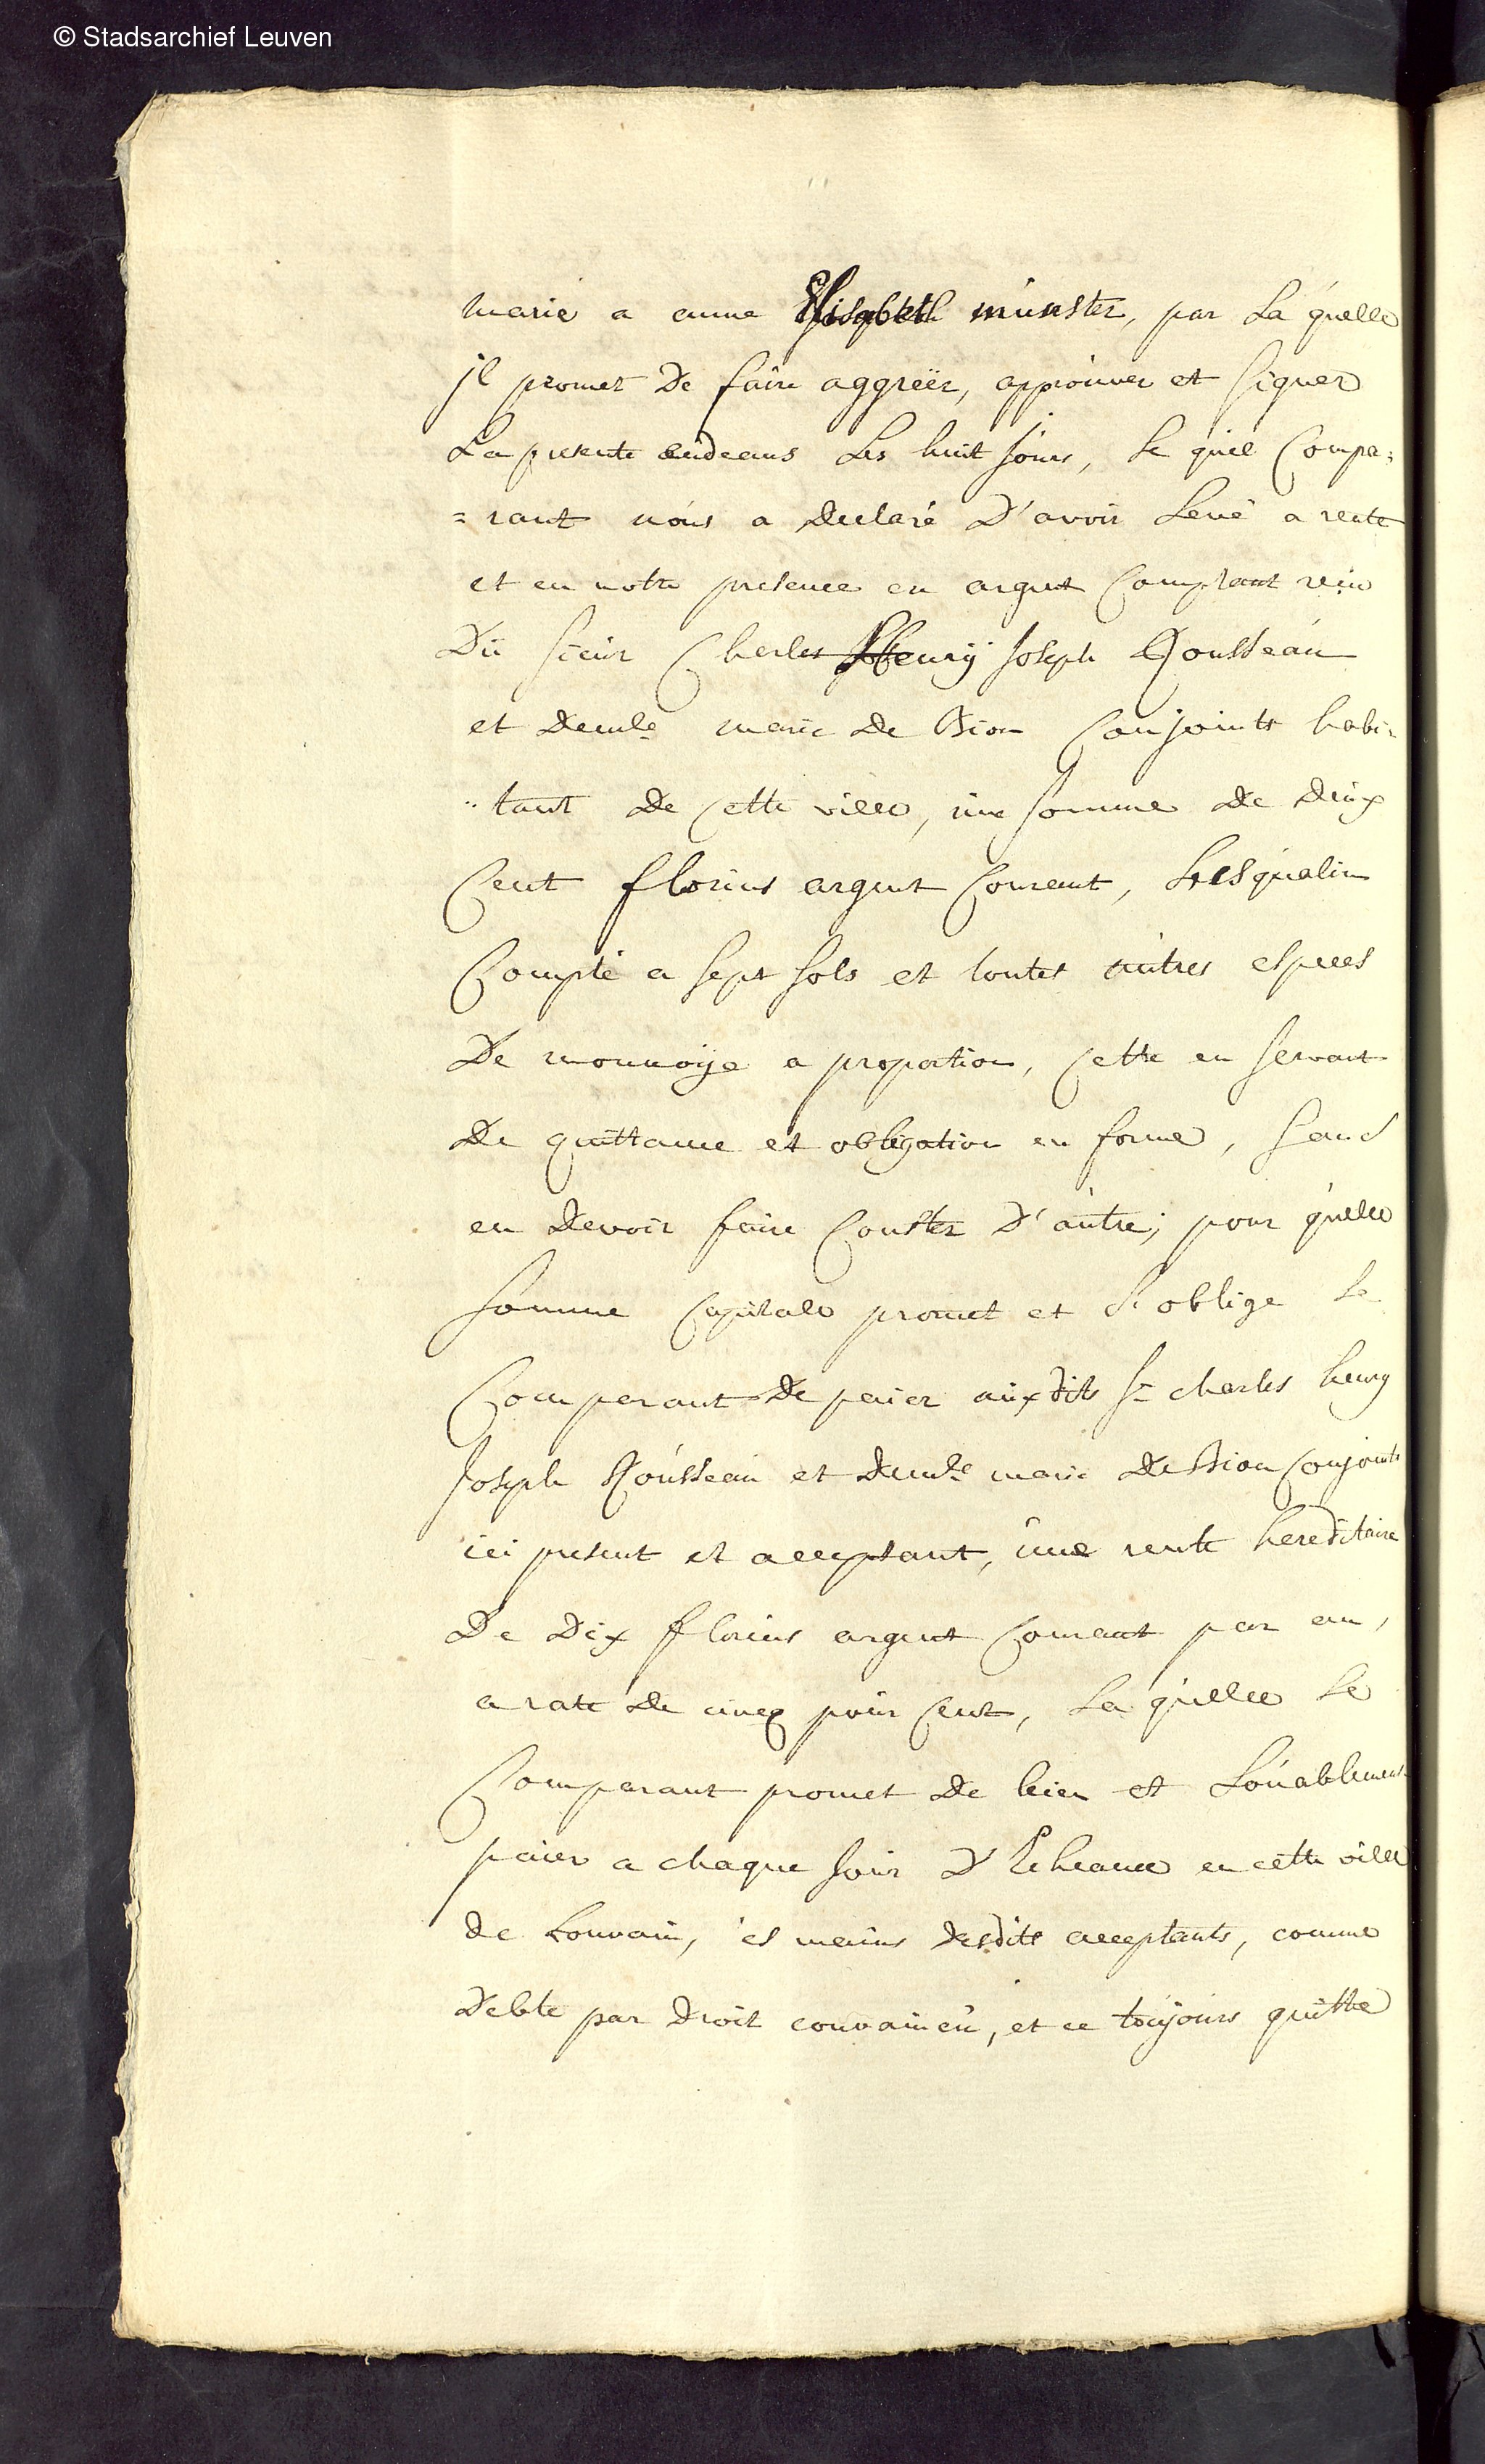 © Stadsarchief Leuven
marié a anne Elisabeth munster, par la quelle
jl promet de faire aggreër, approuver et signer
la presente endeans les huit jours, le quel compa=
=rant nous a declaré d'avoir levé a rente
et en notre presence en argent comptant recu
du sieur Charles Henrÿ Joseph Rousseau
et demle marie de Bion conjoints habi-
tant de cette ville, une somme de deux
cent florins argent courant, l'esqualin
compté a sept sols et toutes autres especes
de monnoÿe a proportion, cette en servant
de quittance et obligation en forme, sans
en devoir faire conster d'autre; pour quelle
somme capitale promet et s'oblige le
comparant de paier auxdits sr charles henry
Joseph Rousseau et demle marie de Bion conjoints
ici present et acceptant, une rente hereditaire
de dix florins argent courant par an,
a rate de cinq pour cent, la quelle le
comparant promet de bien et louablement
paier a chaque jour d'Echeance en cette ville
de Louvain, és mains desdits acceptants, comme
debte par droit convaincu, et ce toujours quitte